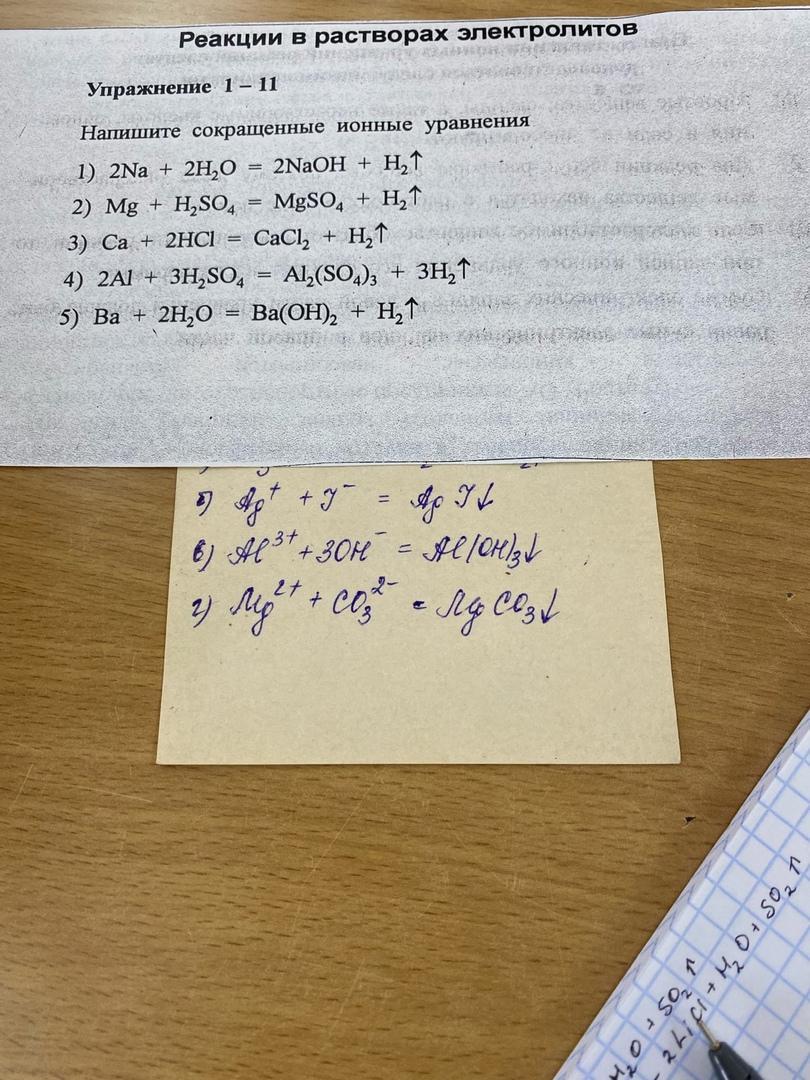 Реакции в растворах электролитов
Упражнение 1 – 11
Напишите сокращенные ионные уравнения
1) 2Na + 2H₂O = 2NaOH + H₂↑
2) Mg + H₂SO₄ = MgSO₄ + H₂↑
3) Ca + 2HCl = CaCl₂ + H₂↑
4) 2Al + 3H₂SO₄ = Al₂(SO₄)₃ + 3H₂↑
5) Ba + 2H₂O = Ba(OH)₂ + H₂↑
б) Ag⁺ + I⁻ = AgI↓
в) Al³⁺ + 3OH⁻ = Al(OH)₃↓
г) Mg²⁺ + CO₃²⁻ = MgCO₃↓
H₂O + SO₂↑
2LiCl + H₂O + SO₂↑